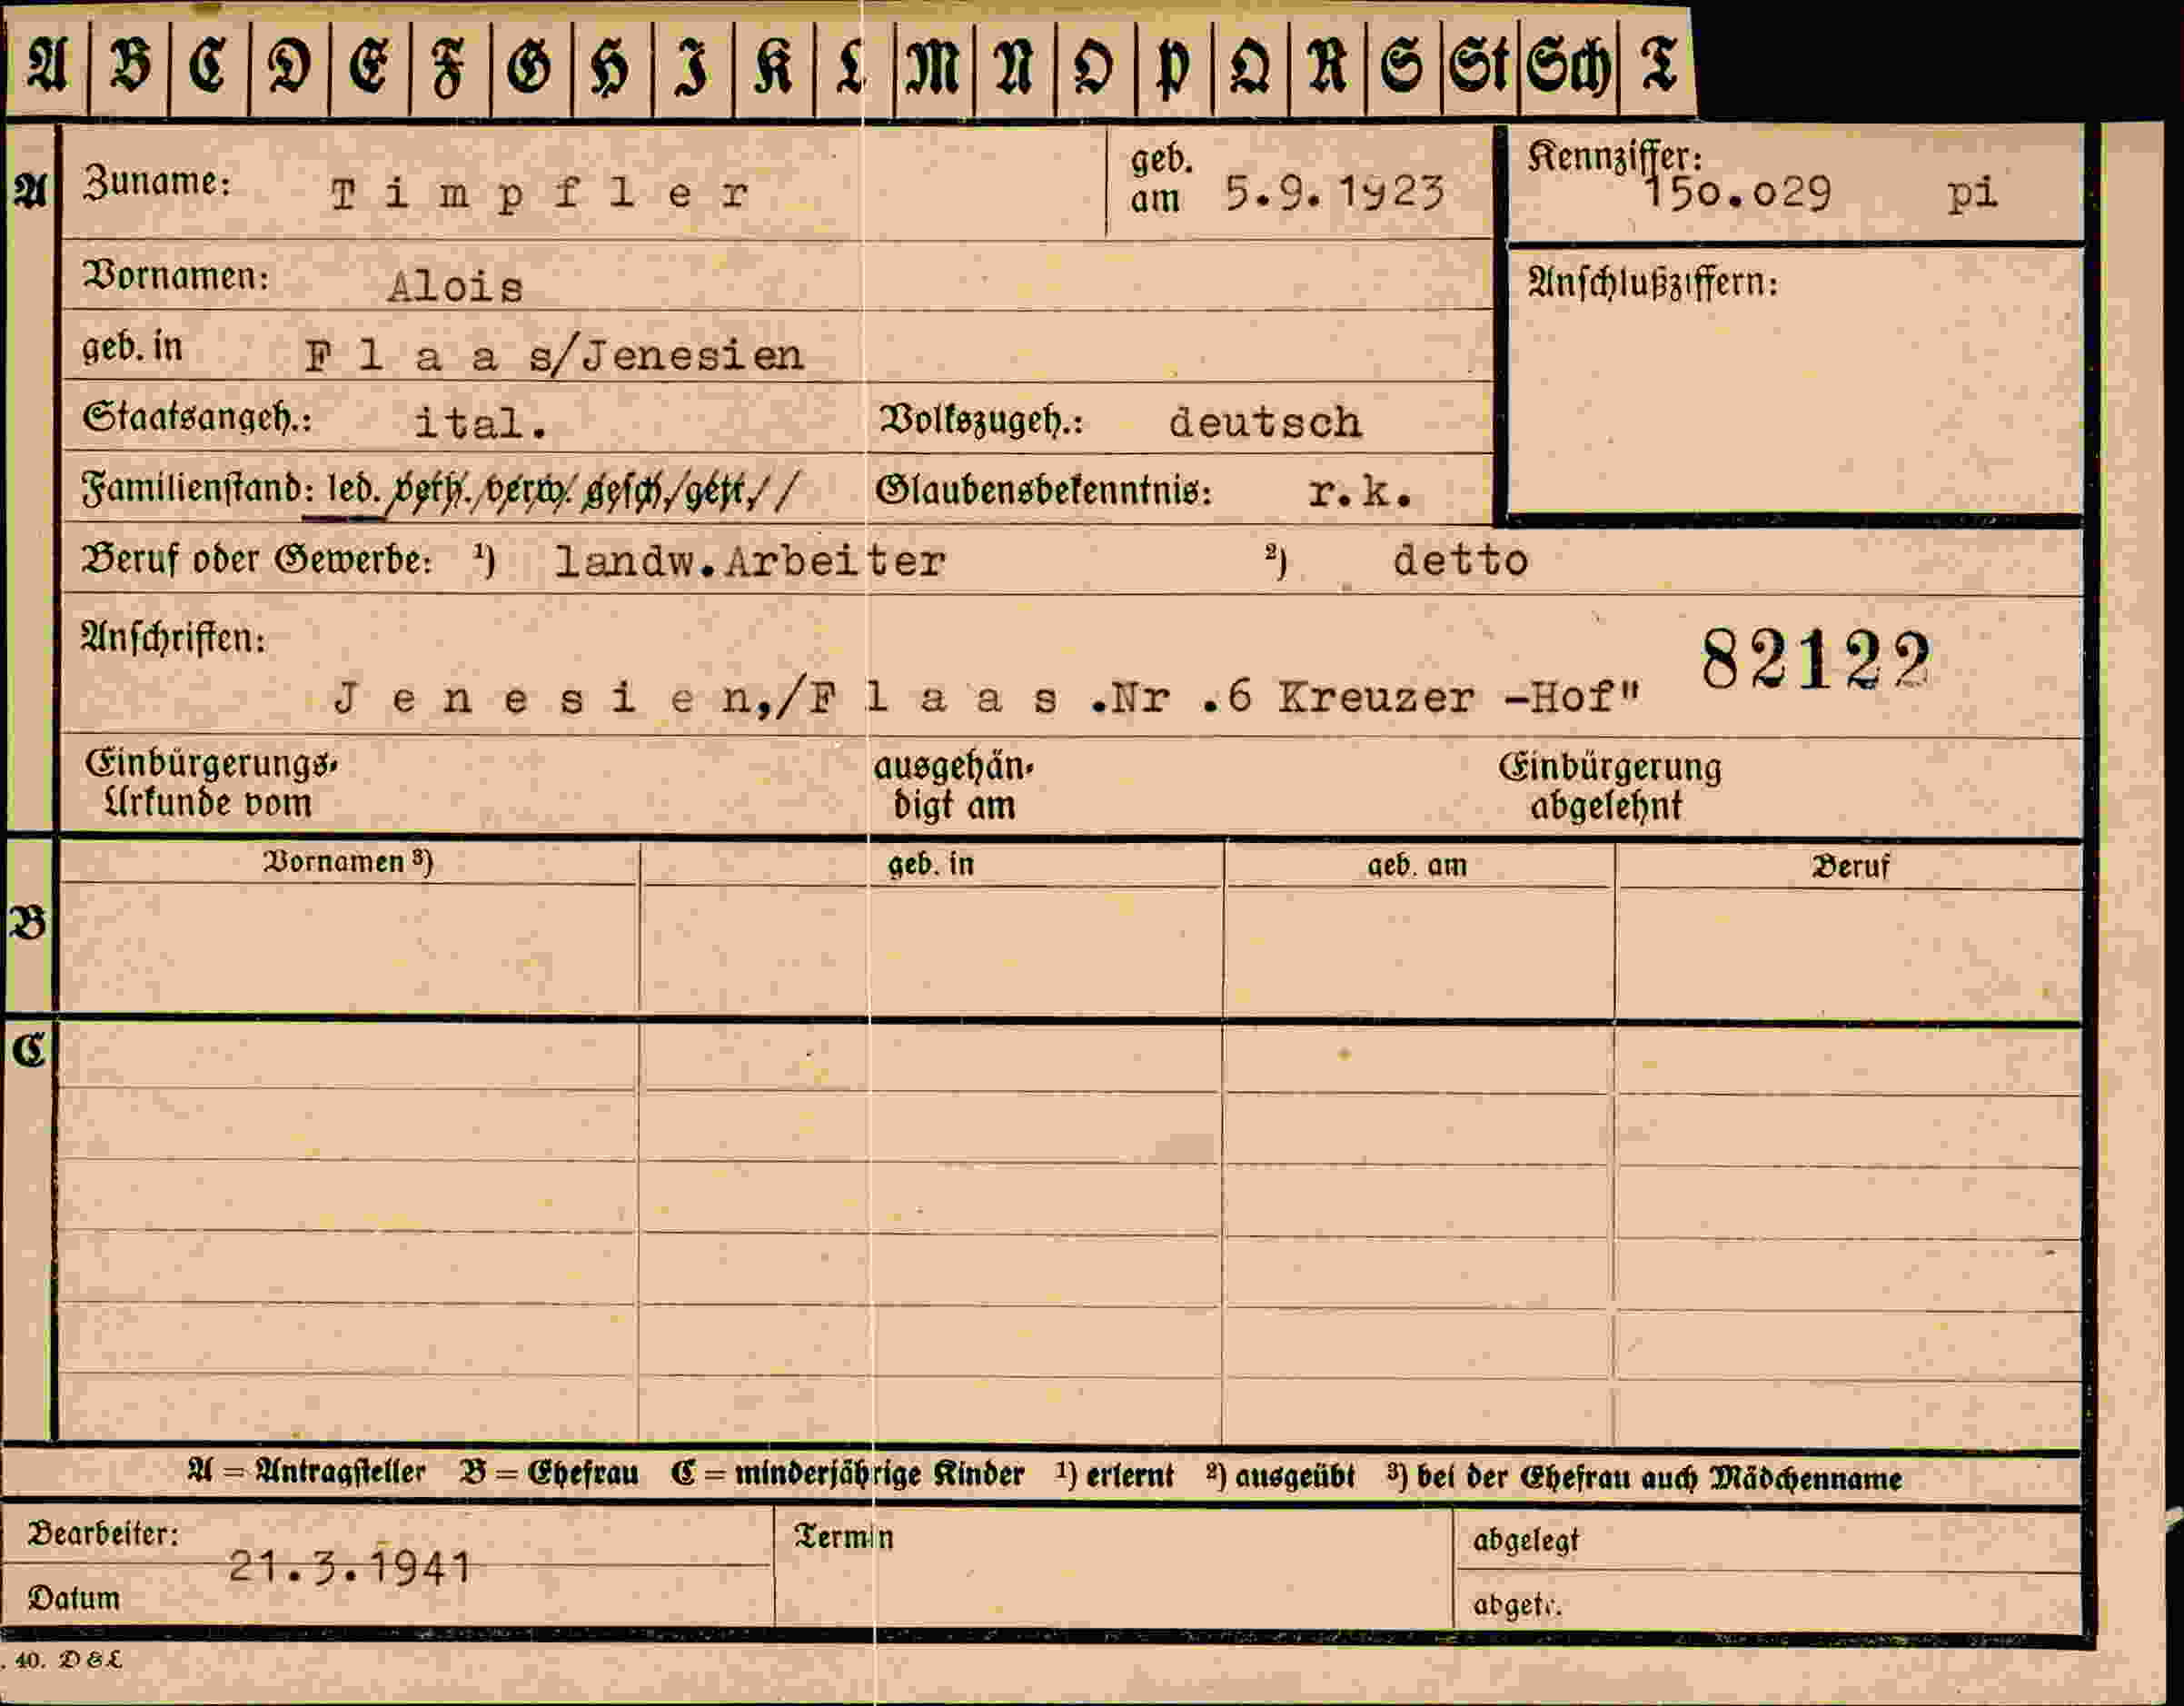 A B C D E F G H I K L M N O P Q R S St Sch T
A Zuname: Timpfler geb. am 5.9.1923 Kennziffer: 150.029 pi
Vornamen: Alois Anschlußziffern:
geb. in Flaas/Jenesien
Staatsangeh.: ital. Volkszugeh.: deutsch
Familienstand: led. verh. verw. gesch. getr. Glaubensbekenntnis: r.k.
Beruf oder Gewerbe: ¹) landw.Arbeiter ²) detto
Anschriften: 82122
Jenesien,/Flaas.Nr.6 Kreuzer -Hof"
Einbürgerungs- ausgehän- Einbürgerung
Urkunde vom digt am abgelehnt
Vornamen ³) geb. in geb. am Beruf
B
C
A = Antragsteller B = Ehefrau C = minderjährige Kinder ¹) erlernt ²) ausgeübt ³) bei der Ehefrau auch Mädchenname
Bearbeiter: Termin abgelegt
21.3.1941
Datum abgetr.
. 40. D&L